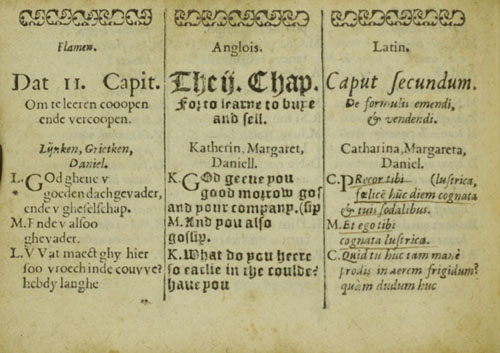 Flamen.
Dat II. Capit.
Om te leeren cooopen
ende vercoopen.
Lijnken, Grietken,
Daniel.
L. GOd gheue v
goeden dach gevader,
ende v gheselschap.
M. Ende v alsoo
ghevader.
L. VVat maect ghy hier
soo vroech inde couwe?
hebdy langhe
Anglois.
The ij. Chap.
For to learne to buye
and sell.
Katherin, Margaret,
Daniell.
K. GOd geeue you
good morrow gos
and your company. (sip
M. And you also
gossip.
K. What do you heere
so earlie in the coulde?
haue you
Latin.
Caput secundum.
De formulis emendi,
& vendendi.
Catharina, Margareta,
Daniel.
C. PRecor tibi (lustrica,
fœlicē hūc diem cognata
& tuis sodalibus.
M. Et ego tibi
cognata lustrica.
C. Quid tu huc tam manè
prodis in aerem frigidum?
quàm dudum huc